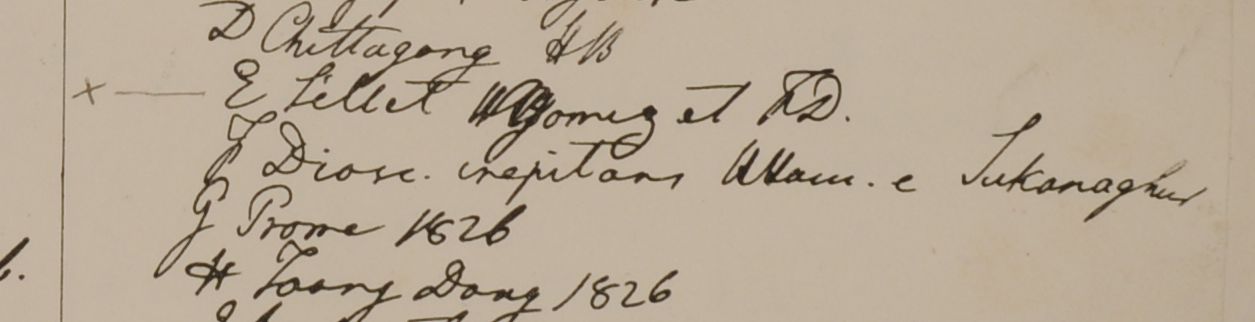 D Chittagong HB
E Sillet Gomez et FD.
F Diosc. crepitans Ham. e Sukanaghur
G Prome 1826
H Taong Dong 1826